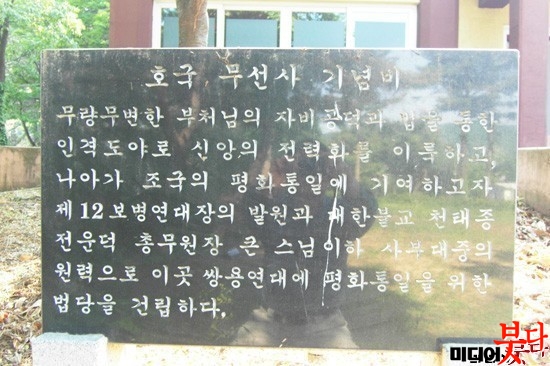 호국 무선사 기념비
무량무변한 부처님의 자비공덕과 법을 통한
인격도야로 신앙의 전력화를 이룩하고,
나아가 조국의 평화통일에 기여하고자
제12보병연대장의 발원과 대한불교 천태종
전운덕 총무원장 큰 스님이하 사부대중의
원력으로 이곳 쌍용연대에 평화통일을 위한
법당을 건립하다.
붓다
미디어